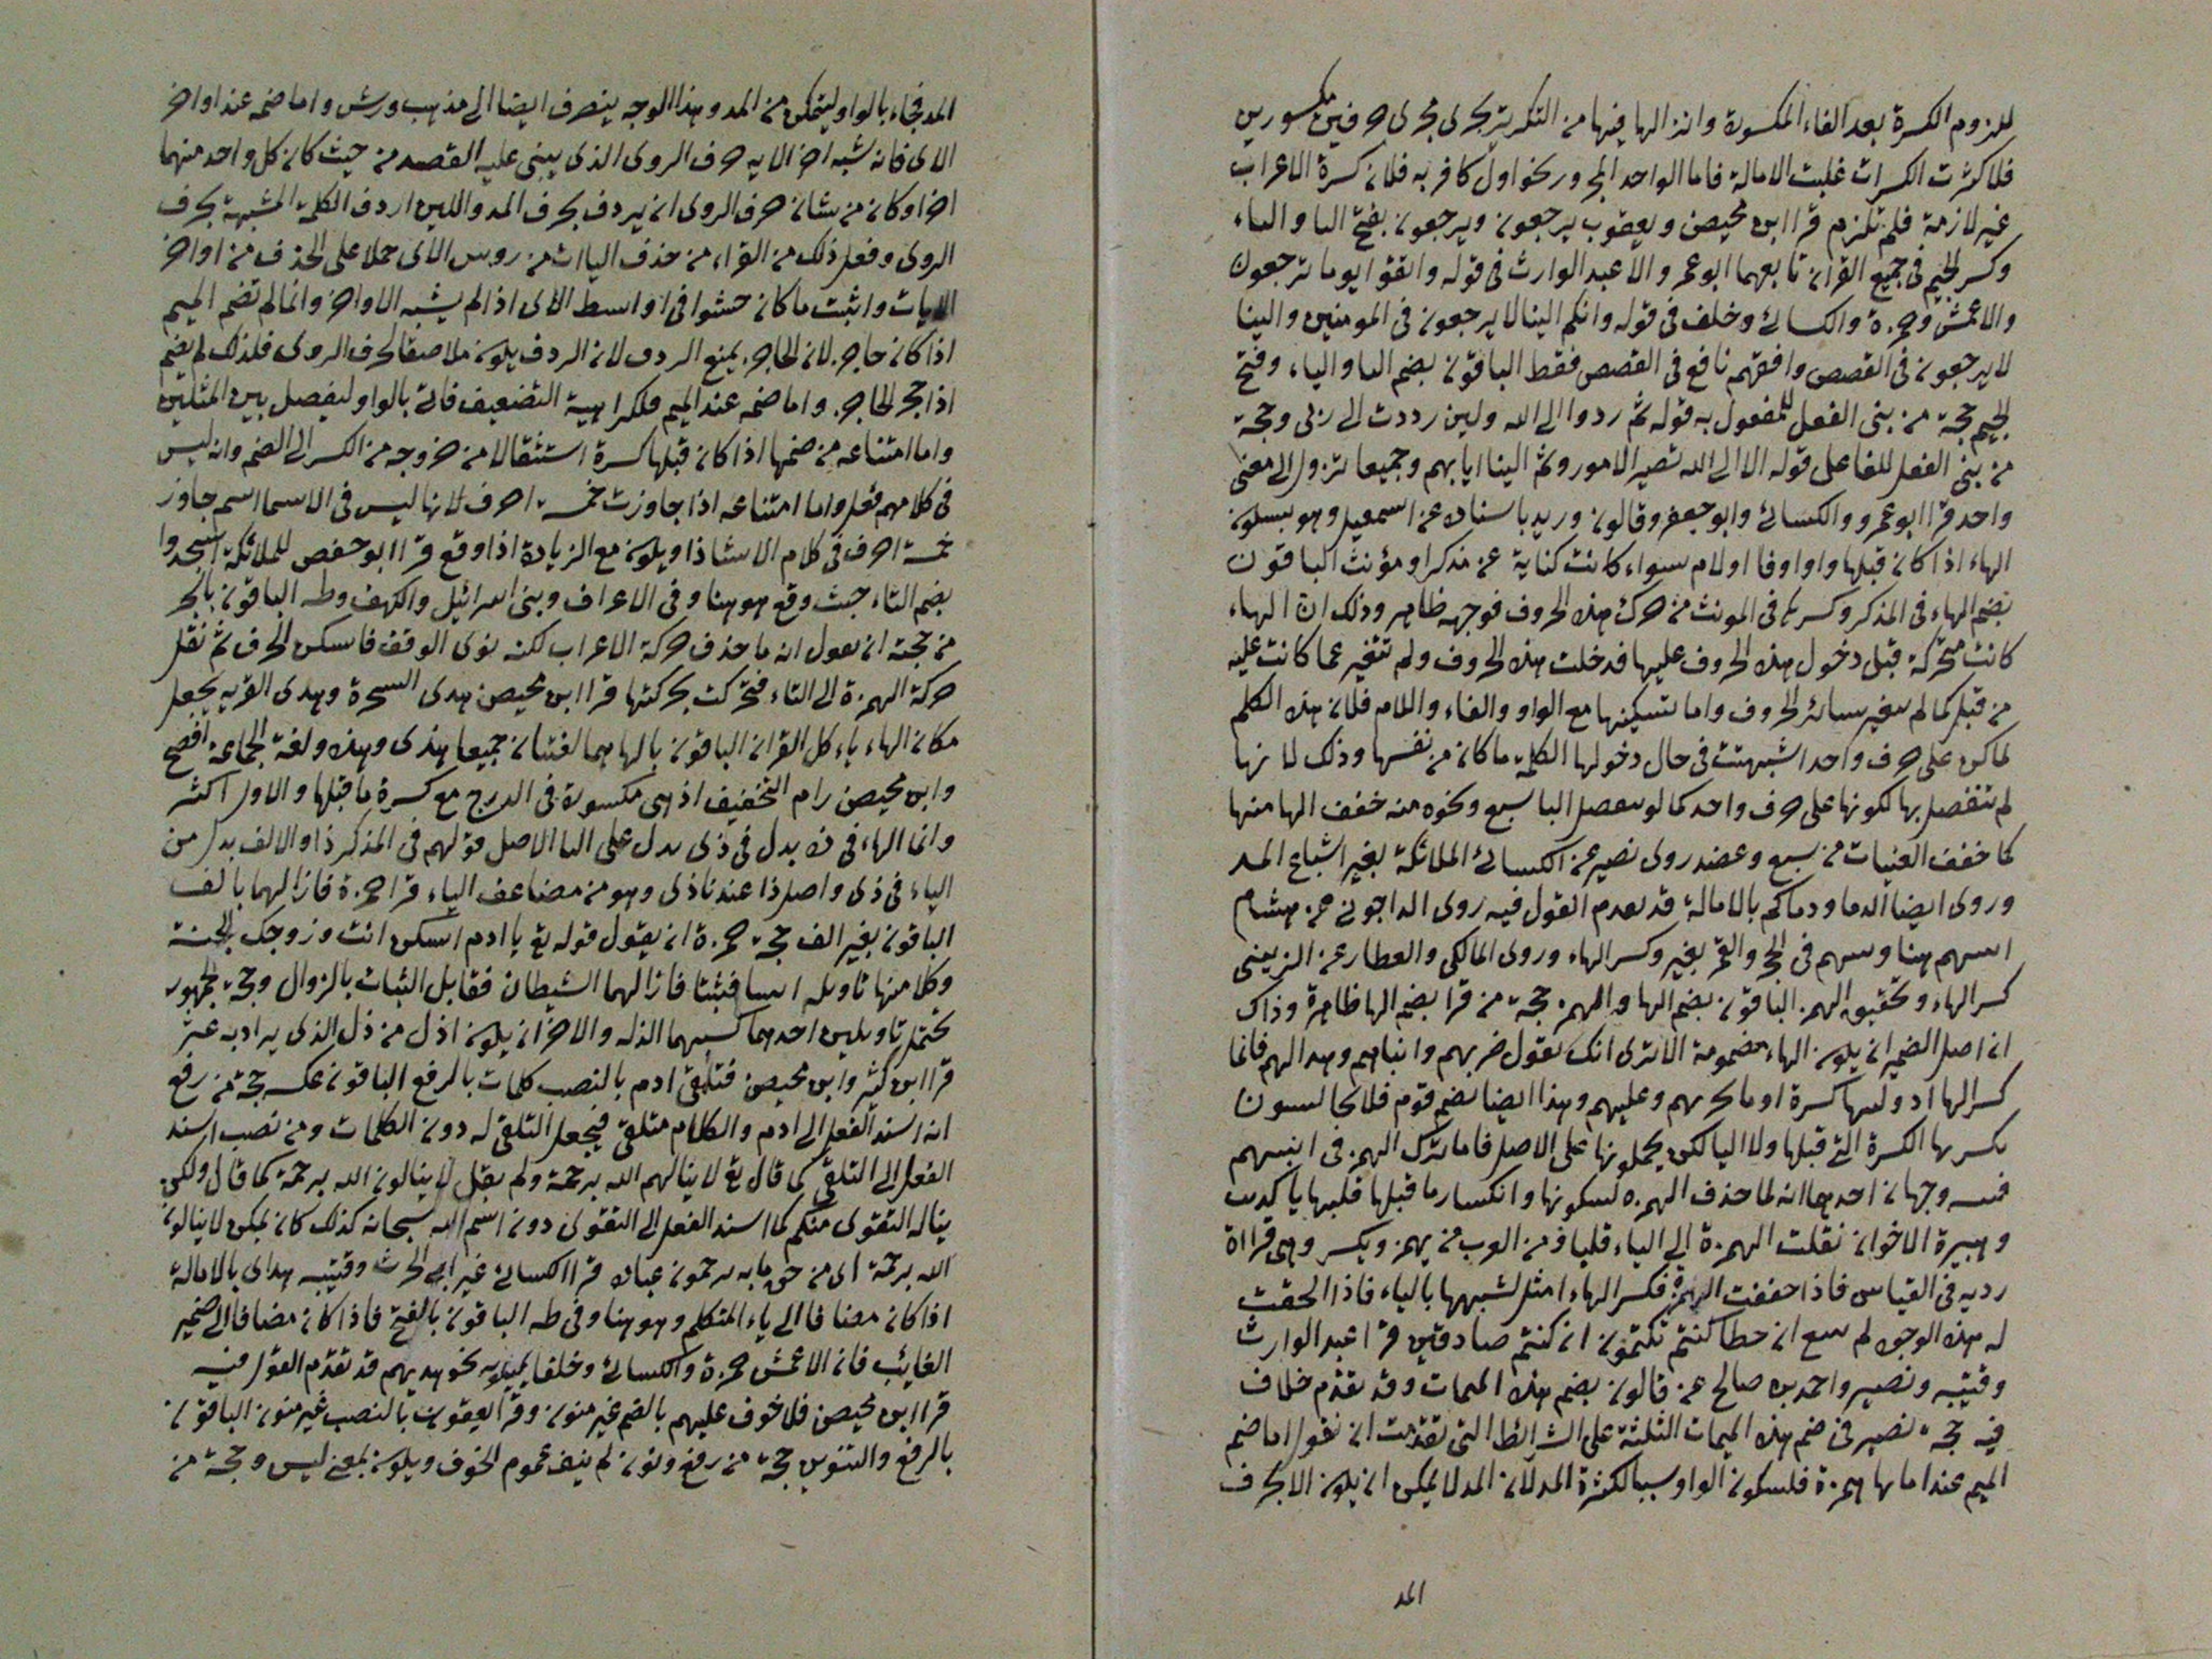 للزوم الكسرة بعد الفاء المكسورة وان الراء فيها من التكرير تجرى مجرى حرفين مكسورين
فلما كثرت الكسرات غلبت الامالة فاما الواحد المجرور نحو اول كافر به فلان كسرة الاعراب
غير لازمة فلم تلزم قرا ابن محيصن ويعقوب يرجعون ويرجعون بفتح التا والياء
وكسر الجيم فى جميع القران تابعهما ابو عمرو الا عبد الوارث فى قوله واتقوا يوما ترجعون
والاعمش وحمزة والكسائى وخلف فى قوله وانكم الينا لا يرجعون فى المومنين والينا
لا يرجعون فى القصص وافقهم نافع فى القصص فقط الباقون بضم التا والياء وفتح
الجيم حجة من بنى الفعل للمفعول به قوله ثم ردوا الى الله ولين رددت الى ربى وحجة
من بنى الفعل للفاعل قوله الا الى الله تصير الامور وثم الينا ايابهم وجميعا تزول الى معنى
واحد قرا ابو عمرو والكسائى وابو جعفر وقالون وريد باسناده عن اسمعيل وهو بسكون
الهاء اذا كان قبلها واو او فا او لام سواء كانت كناية عن مذكر او مؤنث الباقون
بضم الهاء فى المذكر وكسرها فى المونث من حرك هذه الحروف فوجهه ظاهر وذلك ان الهاء
كانت متحركة قبل دخول هذه الحروف عليها فدخلت هذه الحروف ولم تتغير عما كانت عليه
من قبل كما لم يتغير سائر الحروف واما تسكينها مع الواو والفاء واللام فلان هذه الكلم
لما كن على حرف واحد اشبهت فى حال دخولها الكلمة ما كان من نفسها وذلك لانها
لم تنفصل بها لكونها على حرف واحد كما لو ينفصل البا سبع ونحوه منه خفف الها منها
كما خفف العينات من سبع وعضد روى نصير عن الكسائى الملائكة بغير اشباع المد
وروى ايضا الدما ودماكم بالامالة قد تقدم القول فيه روى الداجونى عن هشام
انبيهم هنا ونبيهم فى الحجر والقمر بغير وكسر الهاء وروى المالكى والعطار عن الزينبى
كسر الهاء وتحقيق الهمز الباقون بضم الها والهمز حجة من قرا بضم الها ظاهرة وذاك
ان اصل الضمير ان يكون الهاء مضمومة الا ترى انك تقول ضربهم وانباهم وهدالهم فانما
كسر الها اذ وليها كسرة او يا نحو بهم وعليهم وهذا ايضا يضم قوم فلا يجانسون
بكسرها الكسرة التى قبلها ولا اليا لكن يحملونها على الاصل فاما ترك الهمز فى انبيهم
ففيه وجهان احدهما انه لما حذف الهمزه لسكونها وانكسار ما قبلها قلبها يا كذيب
وهبيرة الاخوان نقلت الهمزة الى الياء قلبا ومن العرب من يهمز ويكسر وهى قراة
ردية فى القياس فاذا خففت الهمزة فكسر الهاء امثل لشبهها بالياء فاذا الحقت
له هذه الوجوه لم سع ان خطا كنتم تكتمون ان كنتم صادقين قرا عبد الوارث
وقتيبه ونصير واحمد بن صالح عن قالون بضم هذه الميمات وقد تقدم خلاف
فيه حجة نصير فى ضم هذه الميمات الثلثة على الشرائط التى تقدمت ان نقول اما ضم
الميم عند ما بها همزة فلسكون الواو سببا لكثرة المد لان المد لا يمكن ان يكون الا بحرف
المد
المد فجاء بالواو ليتمكن من المد وهذا الوجه ينصرف ايضا الى مذهب ورش واما ضمه عند اواخر
الاى فانه شبه اخر الايه بحرف الروى الذى يبنى عليه القصيد من حيث كان كل واحد منهما
اخرا وكان من شان حرف الروى ان يردف بحرف المد واللين اردف الكلمة المشبهة بحرف
الروى وفعل ذلك من القراء من حذف الياات من روس الاى حملا على الحذف من اواخر
الابيات واثبت ما كان حشوا فى اواسط الاى اذ لم يشبه الاواخر وانما لم تضم الميم
اذا كان حاجز لان الحاجز يمنع الردف لان الردف يكون ملاصقا لحرف الروى فلذلك لم يضم
اذا حجز الحاجز واما ضمه عند الميم فلكراهية التضعيف فاتى بالواو ليفصل بين المثلين
واما امتناعه من ضمها اذا كان قبلها كسرة استثقالا من خروجه من الكسر الى الضم وانه ليس
فى كلامهم فعل واما امتناعه اذا جاوزت خمسة احرف لانها ليس فى الاسما اسم جاوز
خمسة احرف فى كلام الا شاذا ويكون مع الزيادة اذا وقع قرا ابو حفص للملائكة اسجدوا
بضم التاء حيث وقع هو هنا وفى الاعراف وبنى اسرائيل والكهف وطه الباقون بالجر
من حجته ان يقول انه ما حذف حركة الاعراب لكنه نوى الوقف فاسكن الحرف ثم نقل
حركة الهمزة الى التاء فتحركت بحركتها قرا ابن محيصن هذى الشجرة وهذى القريه يجعل
مكان الهاء ياء كل القران الباقون بالها هما لغتان جميعا هذى وهذه ولغة الجماعة افصح
وابن محيصن رام التخفيف اذ هى مكسورة فى الدرج مع كسرة ما قبلها والاول اكثر
وانما الهاء فى ذه بدل فى ذى يدل على اليا الاصل قولهم فى المذكر ذا والالف بدل من
الياء فى ذى واصل ذا عندنا ذى وهو من مضاعف الياء قرا حمزة فازالهما بالف
الباقون بغير الف حجة حمزة ان يقول قوله تع يا ادم اسكن انت وزوجك الجنة
وكلا منها تاويله اثبتا فثبتا فازالهما الشيطان فقابل الثبات بالزوال وحجة الجمهور
يحتمل تاويلين احدهما كسبهما الذلة والاخر ان يكون اذل من ذل الذى يراد به عثر
قرا ابن كثير وابن محيصن فتلقى ادم بالنصب كلمات بالرفع الباقون عكسه حجة من رفع
انه اسند الفعل الى ادم والكلام متلقى فيجعل التلقى له دون الكلمات ومن نصب اسند
الفعل الى التلقى كما قال تع لا ينالهم الله برحمة ولم يقل لا ينالون الله برحمة كما قال ولكن
يناله التقوى منكم كما اسند الفعل الى التقوى دون اسم الله سبحانه كذلك كان يمكن لا ينالون
الله برحمة اى من حق ما به يرحمون عباده قرا الكسائى غير ابى الحرث وقتيبه هداى بالامالة
اذا كان مضافا الى ياء المتكلم وهو هنا وفى طه الباقون بالفتح فاذا كان مضافا الى ضمير
الغايب فان الاعمش حمزة والكسائى وخلفا يميلونه نحو هديهم قد تقدم القول فيه
قرا ابن محيصن فلا خوف عليهم بالضم غير منون وقرا يعقوب بالنصب غير منون الباقون
بالرفع والتنوين حجة من رفع ونون لم ينف عموم الخوف ويكون بمعنى ليس وحجة من